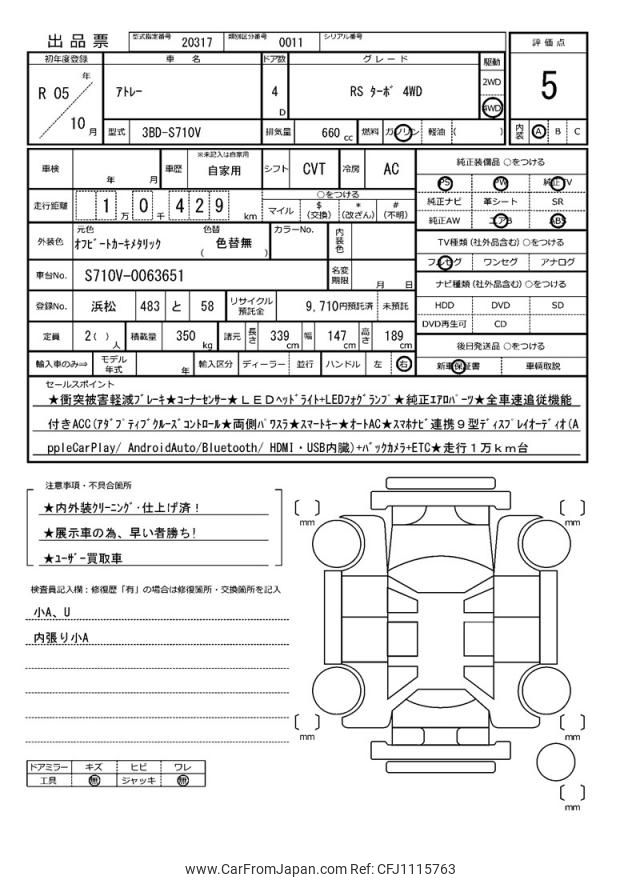 出品票 型式指定番号 20317 類別区分番号 0011 シリアル番号
評価点
5
内装 A B C
初年度登録 車名 ドア数 グレード 駆動
R 05 年 10 月
アトレー 4 D RS ターボ 4WD 2WD 4WD
型式 3BD-S710V 排気量 660 cc 燃料 ガソリン 軽油 ( )
車検 年 月 車歴 ※未記入は自家用 自家用 シフト CVT 冷房 AC
走行距離 1 万 0 千 4 2 9 km
○をつける
マイル $ (交換) * (改ざん) # (不明)
外装色 元色 オフビートカーキメタリック 色替 色替無 ( ) カラーNo. 内装色
車台No. S710V-0063651 名変期限 月 日
登録No. 浜松 483 と 58 リサイクル預託金 9,710円預託済 未預託
定員 2( ) 人 積載量 350 kg 諸元 長さ 339 cm 幅 147 cm 高さ 189 cm
輸入車のみ⇒ モデル年式 年 輸入区分 ディーラー 並行 ハンドル 左 右
純正装備品 ○をつける
PS PW 純正TV
純正ナビ 革シート SR
純正AW エアB ABS
TV種類(社外品含む) ○をつける
フルセグ ワンセグ アナログ
ナビ種類(社外品含む) ○をつける
HDD DVD SD
DVD再生可 CD
後日発送品 ○をつける
新車保証書 車輌取説
セールスポイント
★衝突被害軽減ブレーキ★コーナーセンサー★ＬＥＤヘッドライト+LEDフォグランプ★純正エアロパーツ★全車速追従機能
付きACC(アダプティブクルーズコントロール★両側パワスラ★スマートキー★オートAC★スマホナビ連携９型ディスプレイオーディオ(A
ppleCarPlay/ AndroidAuto/Bluetooth/ HDMI・USB内臓)+バックカメラ+ETC★走行１万ｋｍ台
注意事項・不具合箇所
★内外装クリーニング・仕上げ済！
★展示車の為、早い者勝ち!
★ユーザー買取車
検査員記入欄：修復歴「有」の場合は修復箇所・交換箇所を記入
小A、U
内張り小A
ドアミラー キズ ヒビ ワレ
工具 無 ジャッキ 無
mm mm
mm mm
mm
www.CarFromJapan.com Ref: CFJ1115763